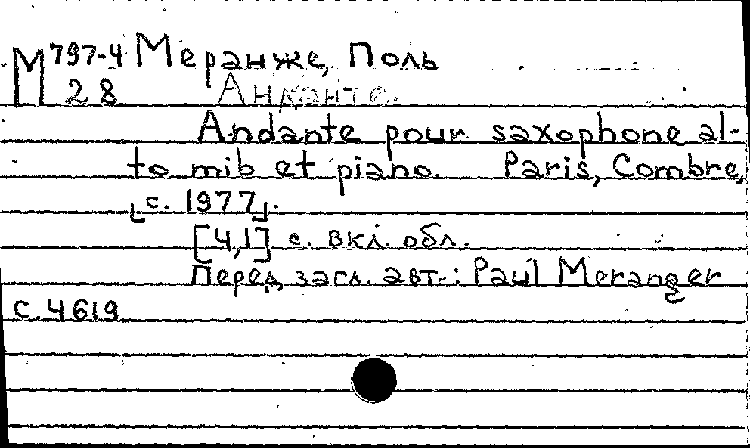 М 797-4 Меранже, Поль
28 Анданте.
Andante pour saxophone al-
to mib et piano. Paris, Combre,
[c. 1977].
[4,1] с. вкл. обл.
Перед загл. авт.: Paul Meranger
с. 4619